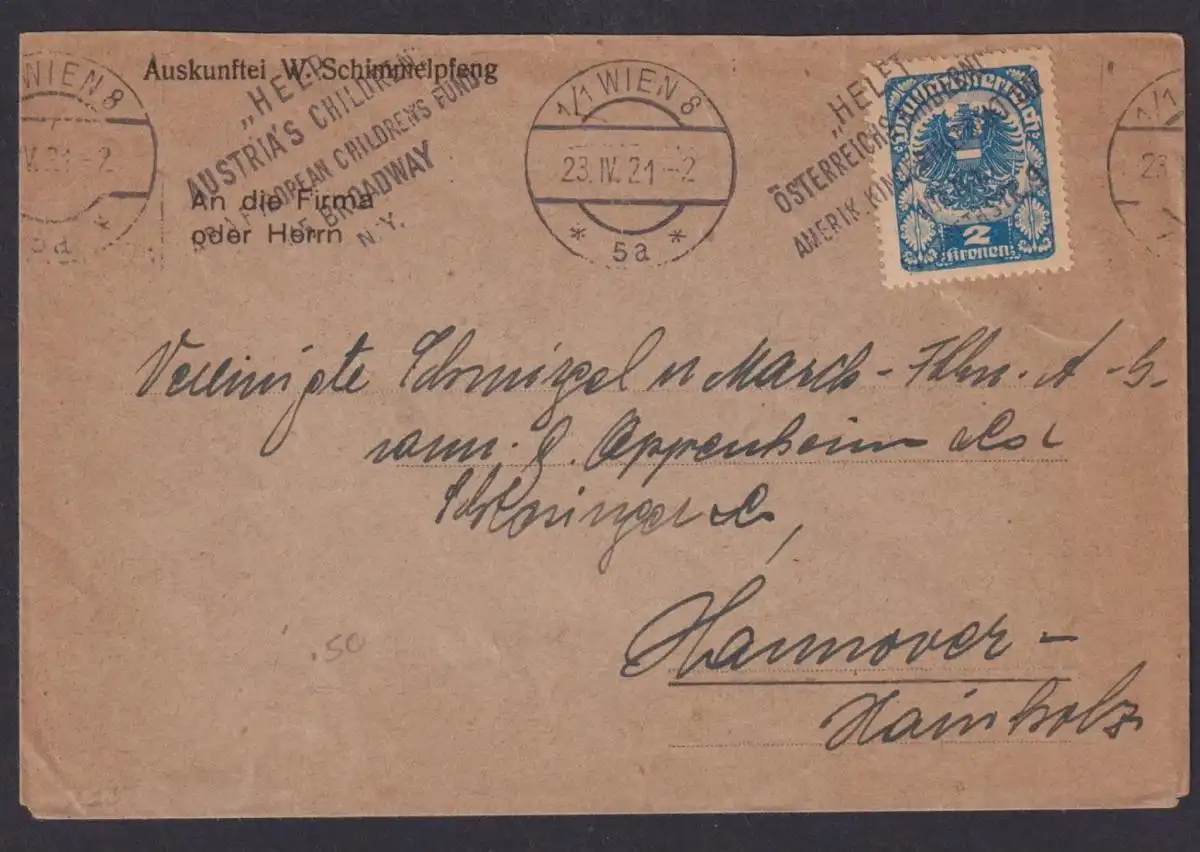 Auskunftei W. Schimmelpfeng
An die Firma
oder Herrn
WIEN 8
IV. 21 - 2
5a *
„HELP
AUSTRIA'S CHILDREN"
EUROPEAN CHILDREN'S FUND
BROADWAY
N.Y.
1/1 WIEN 8
23. IV. 21 - 2
* 5a *
„HELFT
ÖSTERREICHS KINDERN!"
AMERIK.
1/1
23.
*
Deutschösterreich
2
Kronen
Vereinigte Schmirgel u Masch- Fbkn. A - G-
vorm. Oppenheim & Co
&
Hannover -
Hainholz
.50